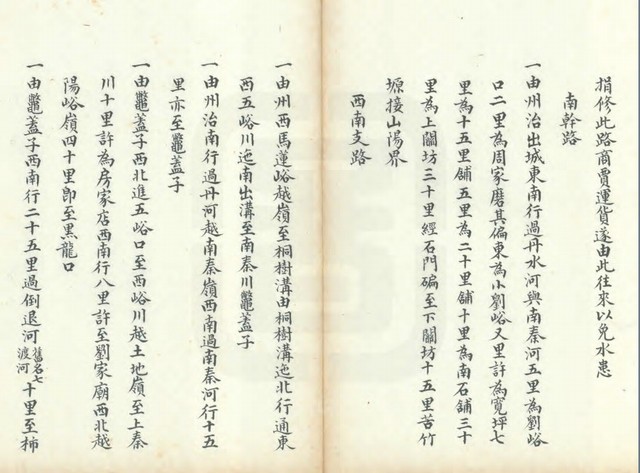 捐修此路商賈運貨遂由此往來以免水患
南幹路
一由州治出城東南行過丹水河與南秦河五里為劉峪
口二里為周家磨其偏東為小劉峪又里許為寬坪七
里為十五里舖五里為二十里舖十里為南石舖三十
里為上關坊三十里經石門碥至下關坊十五里苦竹
塬接山陽界
西南支路
一由州西馬蓮峪越嶺至桐樹溝由桐樹溝迤北行通東
西五峪川迤南出溝至南秦川鼈蓋子
一由州治南行過丹河越南秦嶺西南過南秦河行十五
里亦至鼈蓋子
一由鼈蓋子西北進五峪口至西峪川越土地嶺至上秦
川十里許為房家店西南行八里許至劉家廟西北越
陽峪嶺四十里卽至黑龍口
一由鼈蓋子西南行二十五里過倒退河舊名七渡河十里至柿